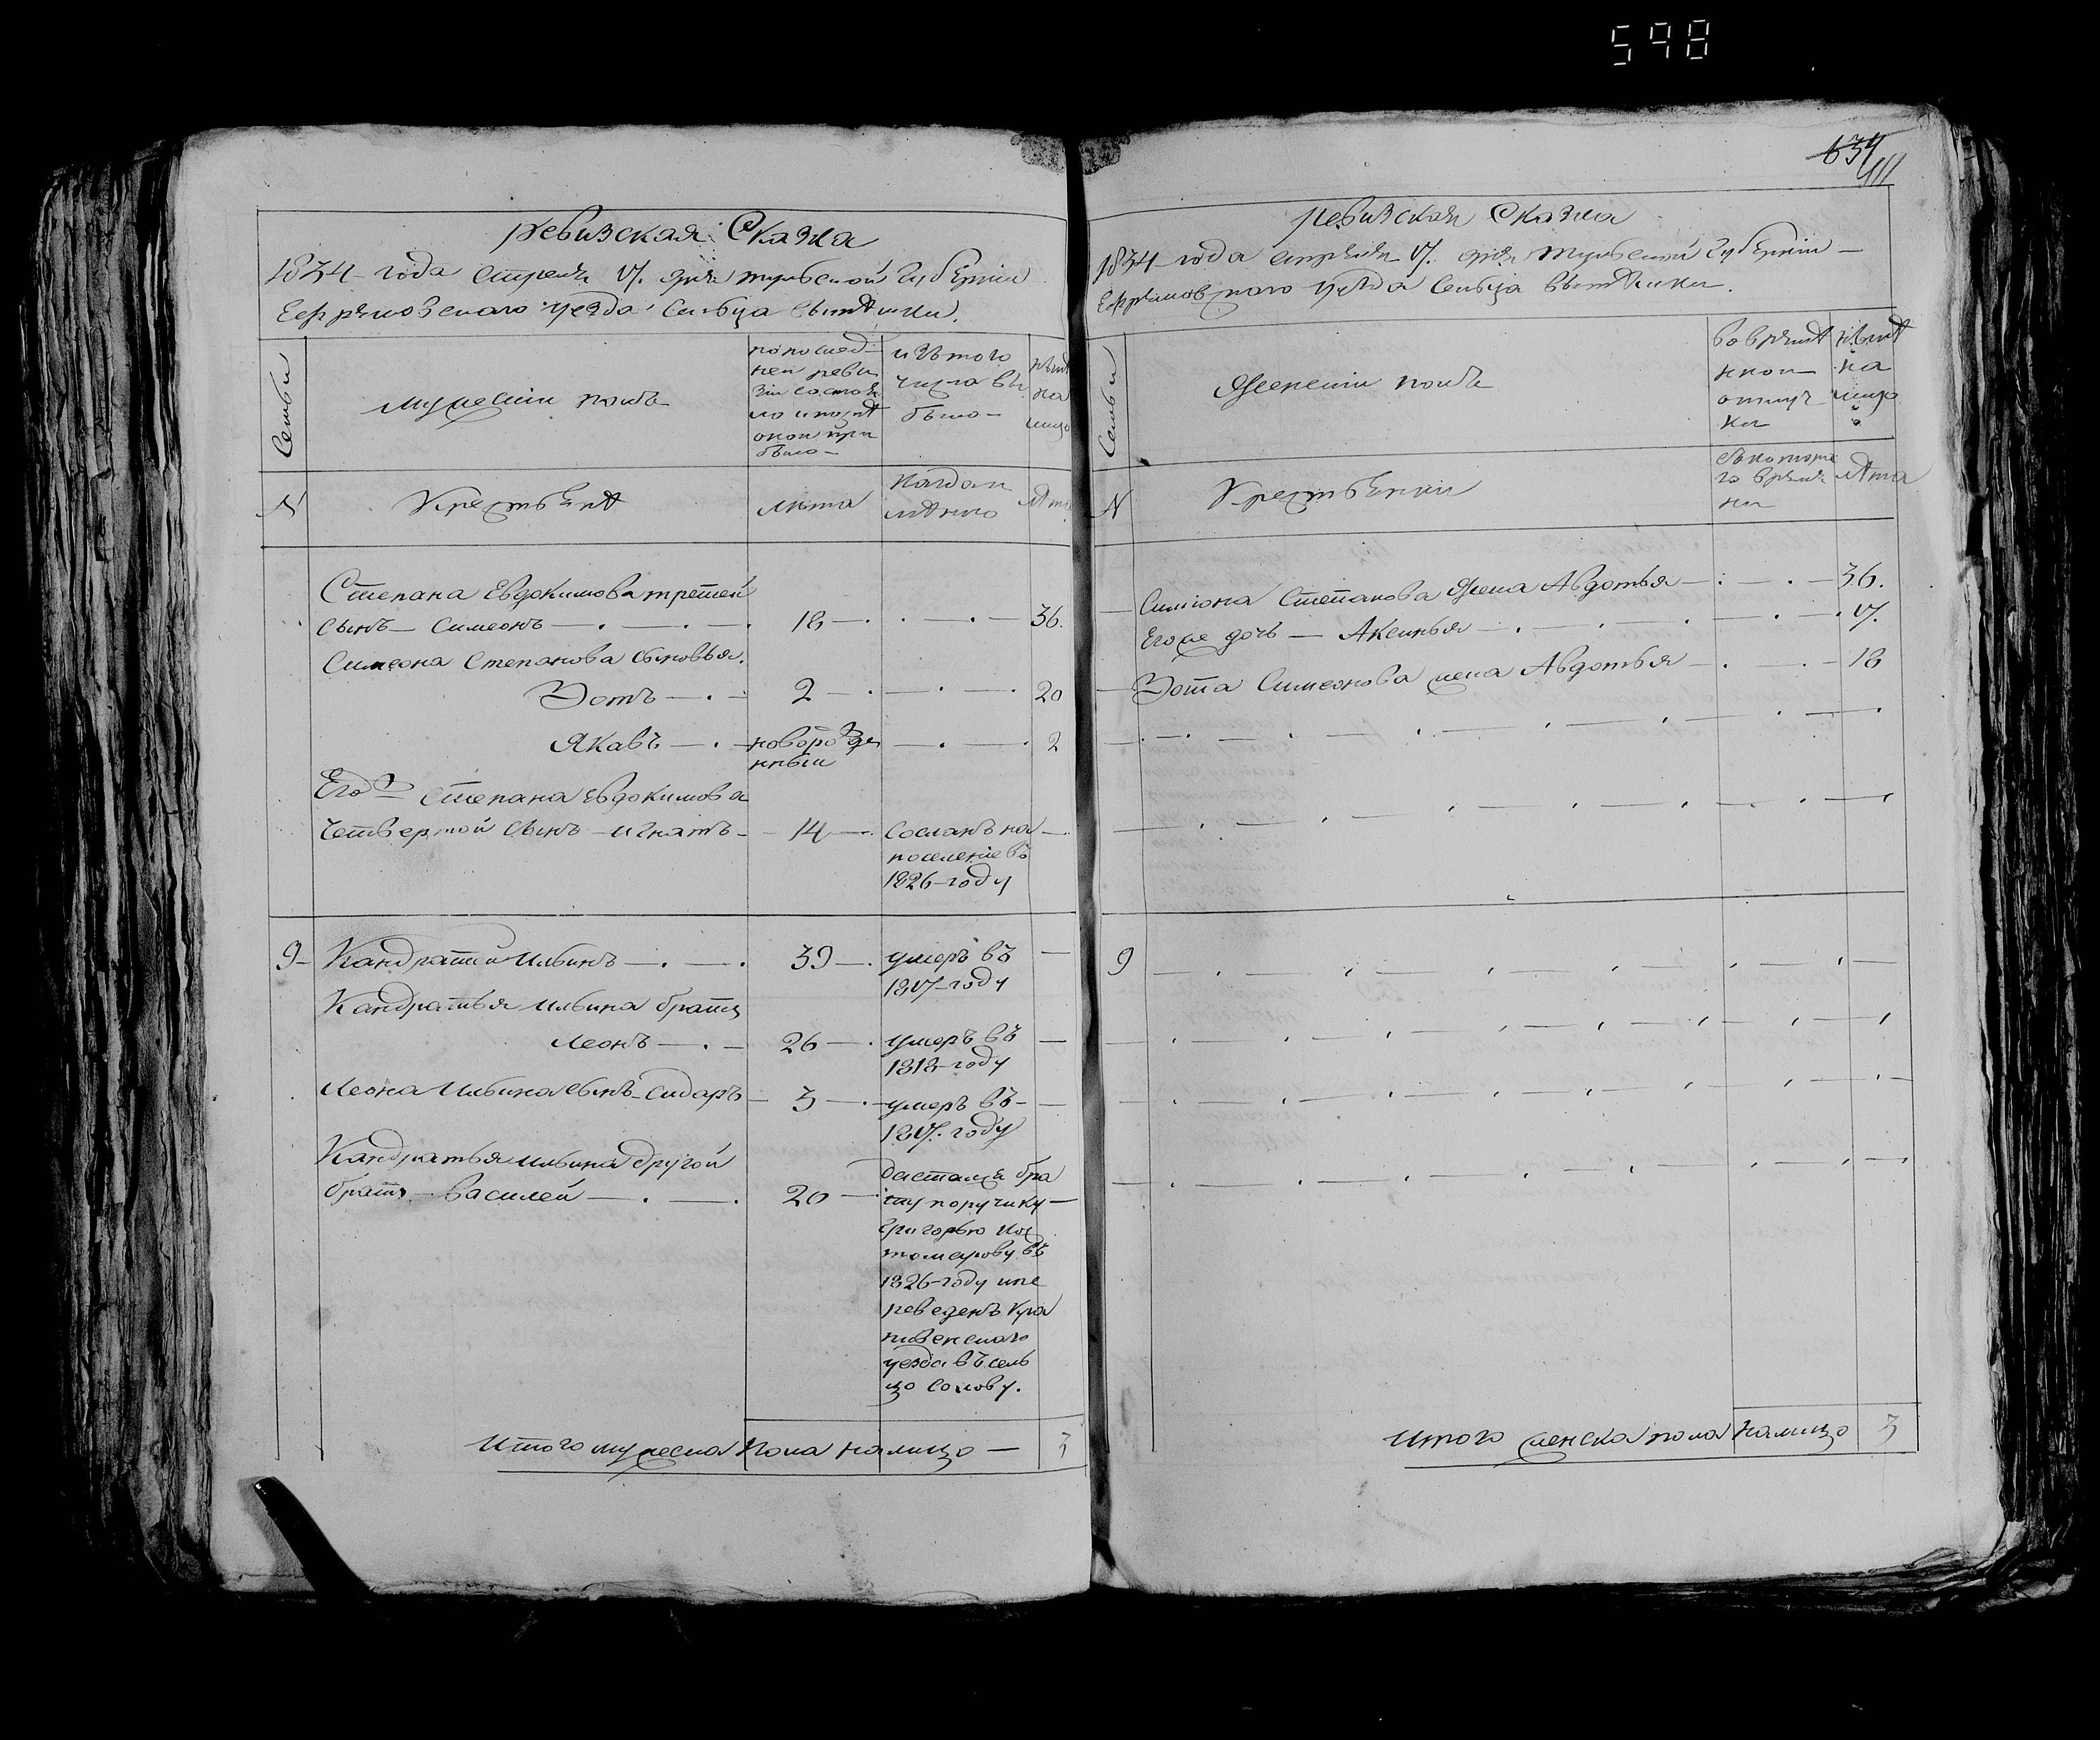 598
634
411
ревизская Сказка
1834 года апреля 17. дня тульской губернии
Ефремовского уезда сельца
Семьи
мужеский полъ
по послед
ней реви
зіи состоя
ло и послѣ
оной при
было
изъ того
числа вы
было
нынѣ
на
лицо
№
Крестьянѣ
лѣта
когда и
лѣта
Степана Евдокимова третей
сынъ — Симеонъ 18 36.
Симеона Степанова сыновья.
Зотъ 2 20
Яковъ новорожде 2
нный
Его Степана Евдокимова
четвертой сынъ — игнатъ 14 сосланъ на
поселеніе въ
1826 году
9 Кандратій Ильинъ 39 умеръ въ
1817 году
Кандратья Ильина братъ
Леонъ 26 умеръ въ
1818 году
Леона Ильина сынъ Сидаръ 3 умеръ въ
1817. году
Кандратья Ильина другой
братъ — василей 20 бра
ту поручику
григорью
въ
1826 году и пе
реведенъ Кра
пивенскаго
уезда въ сель
цо
Итого мужеска пола налицо — 3
ревизская Сказка
1834 года апреля 17. дня тульской губерніи
Ефремовского уезда сельца
Семьи
Женскій полъ
во временѣ
ной
отлуч
ки
нынѣ
на
лицо
№
Крестьянки
съ которо
го време
ни
лѣта
Симіона Степанова жена Авдотья 36.
Его же дочь — Аксинья 17.
Зота Симеонова жена Авдотья 18
9
Итого женска пола налицо 3